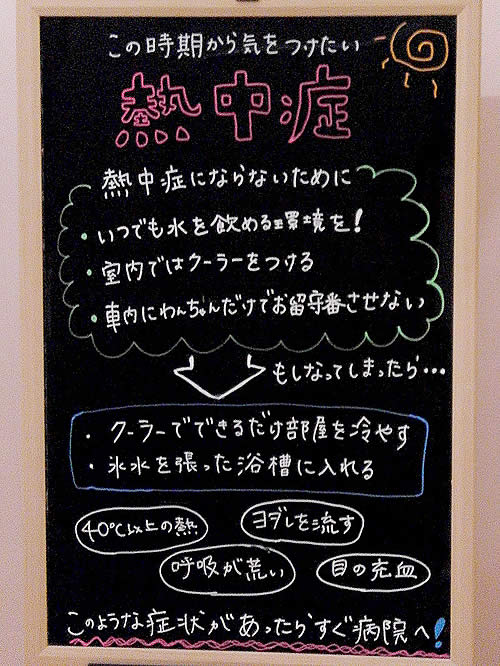 この時期から気をつけたい
熱中症
熱中症にならないために
・いつでも水を飲める環境を!
・室内ではクーラーをつける
・車内にわんちゃんだけでお留守番させない
もしなってしまったら…
・クーラーでできるだけ部屋を冷やす
・氷水を張った浴槽に入れる
40℃以上の熱
ヨダレを流す
呼吸が荒い
目の充血
このような症状があったらすぐ病院へ!